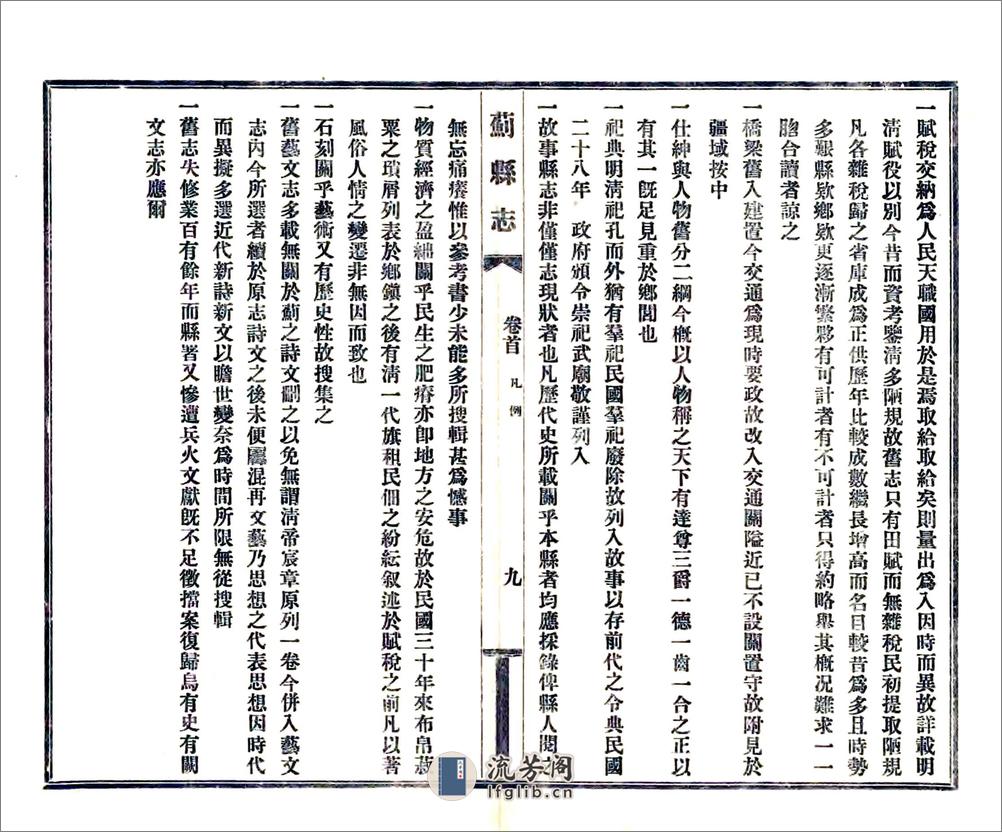 一賦稅交納爲人民天職國用於是焉取給取給矣則量出爲入因時而異故詳載明
淸賦役以別今昔而資考鑒淸多陋規故舊志只有田賦而無雜稅民初提取陋規
凡各雜稅歸之省庫成爲正供歷年比較成數繼長增高而名目較昔爲多且時勢
多艱縣欵鄉欵更逐漸繁夥有可計者有不可計者只得約略舉其槪况難求一一
脗合讀者諒之
一橋梁舊入建置今交通爲現時要政故改入交通關隘近已不設關置守故附見於
疆域按中
一仕紳與人物舊分二綱今槪以人物稱之天下有達尊三爵一德一齒一合之正以
有其一旣足見重於鄉閭也
一祀典明淸祀孔而外猶有羣祀民國羣祀廢除故列入故事以存前代之令典民國
二十八年　政府頒令崇祀武廟敬謹列入
一故事縣志非僅僅志現狀者也凡歷代史所載關乎本縣者均應採錄俾縣人閱之
薊縣志
卷首
凡例
九
無忘痛癢惟以參考書少未能多所搜輯甚爲憾事
一物質經濟之盈絀關乎民生之肥瘠亦卽地方之安危故於民國三十年來布帛菽
粟之瑣屑列表於鄉鎭之後有淸一代旗租民佃之紛紜叙述於賦稅之前凡以著
風俗人情之變遷非無因而致也
一石刻關乎藝術又有歷史性故搜集之
一舊藝文志多載無關於薊之詩文刪之以免無謂淸帝宸章原列一卷今併入藝文
志內今所選者續於原志詩文之後未便羼混再文藝乃思想之代表思想因時代
而異擬多選近代新詩新文以瞻世變奈爲時間所限無從搜輯
一舊志失修業百有餘年而縣署又慘遭兵火文獻旣不足徵擋案復歸烏有史有闕
文志亦應爾
流芳阁
lfglib.cn